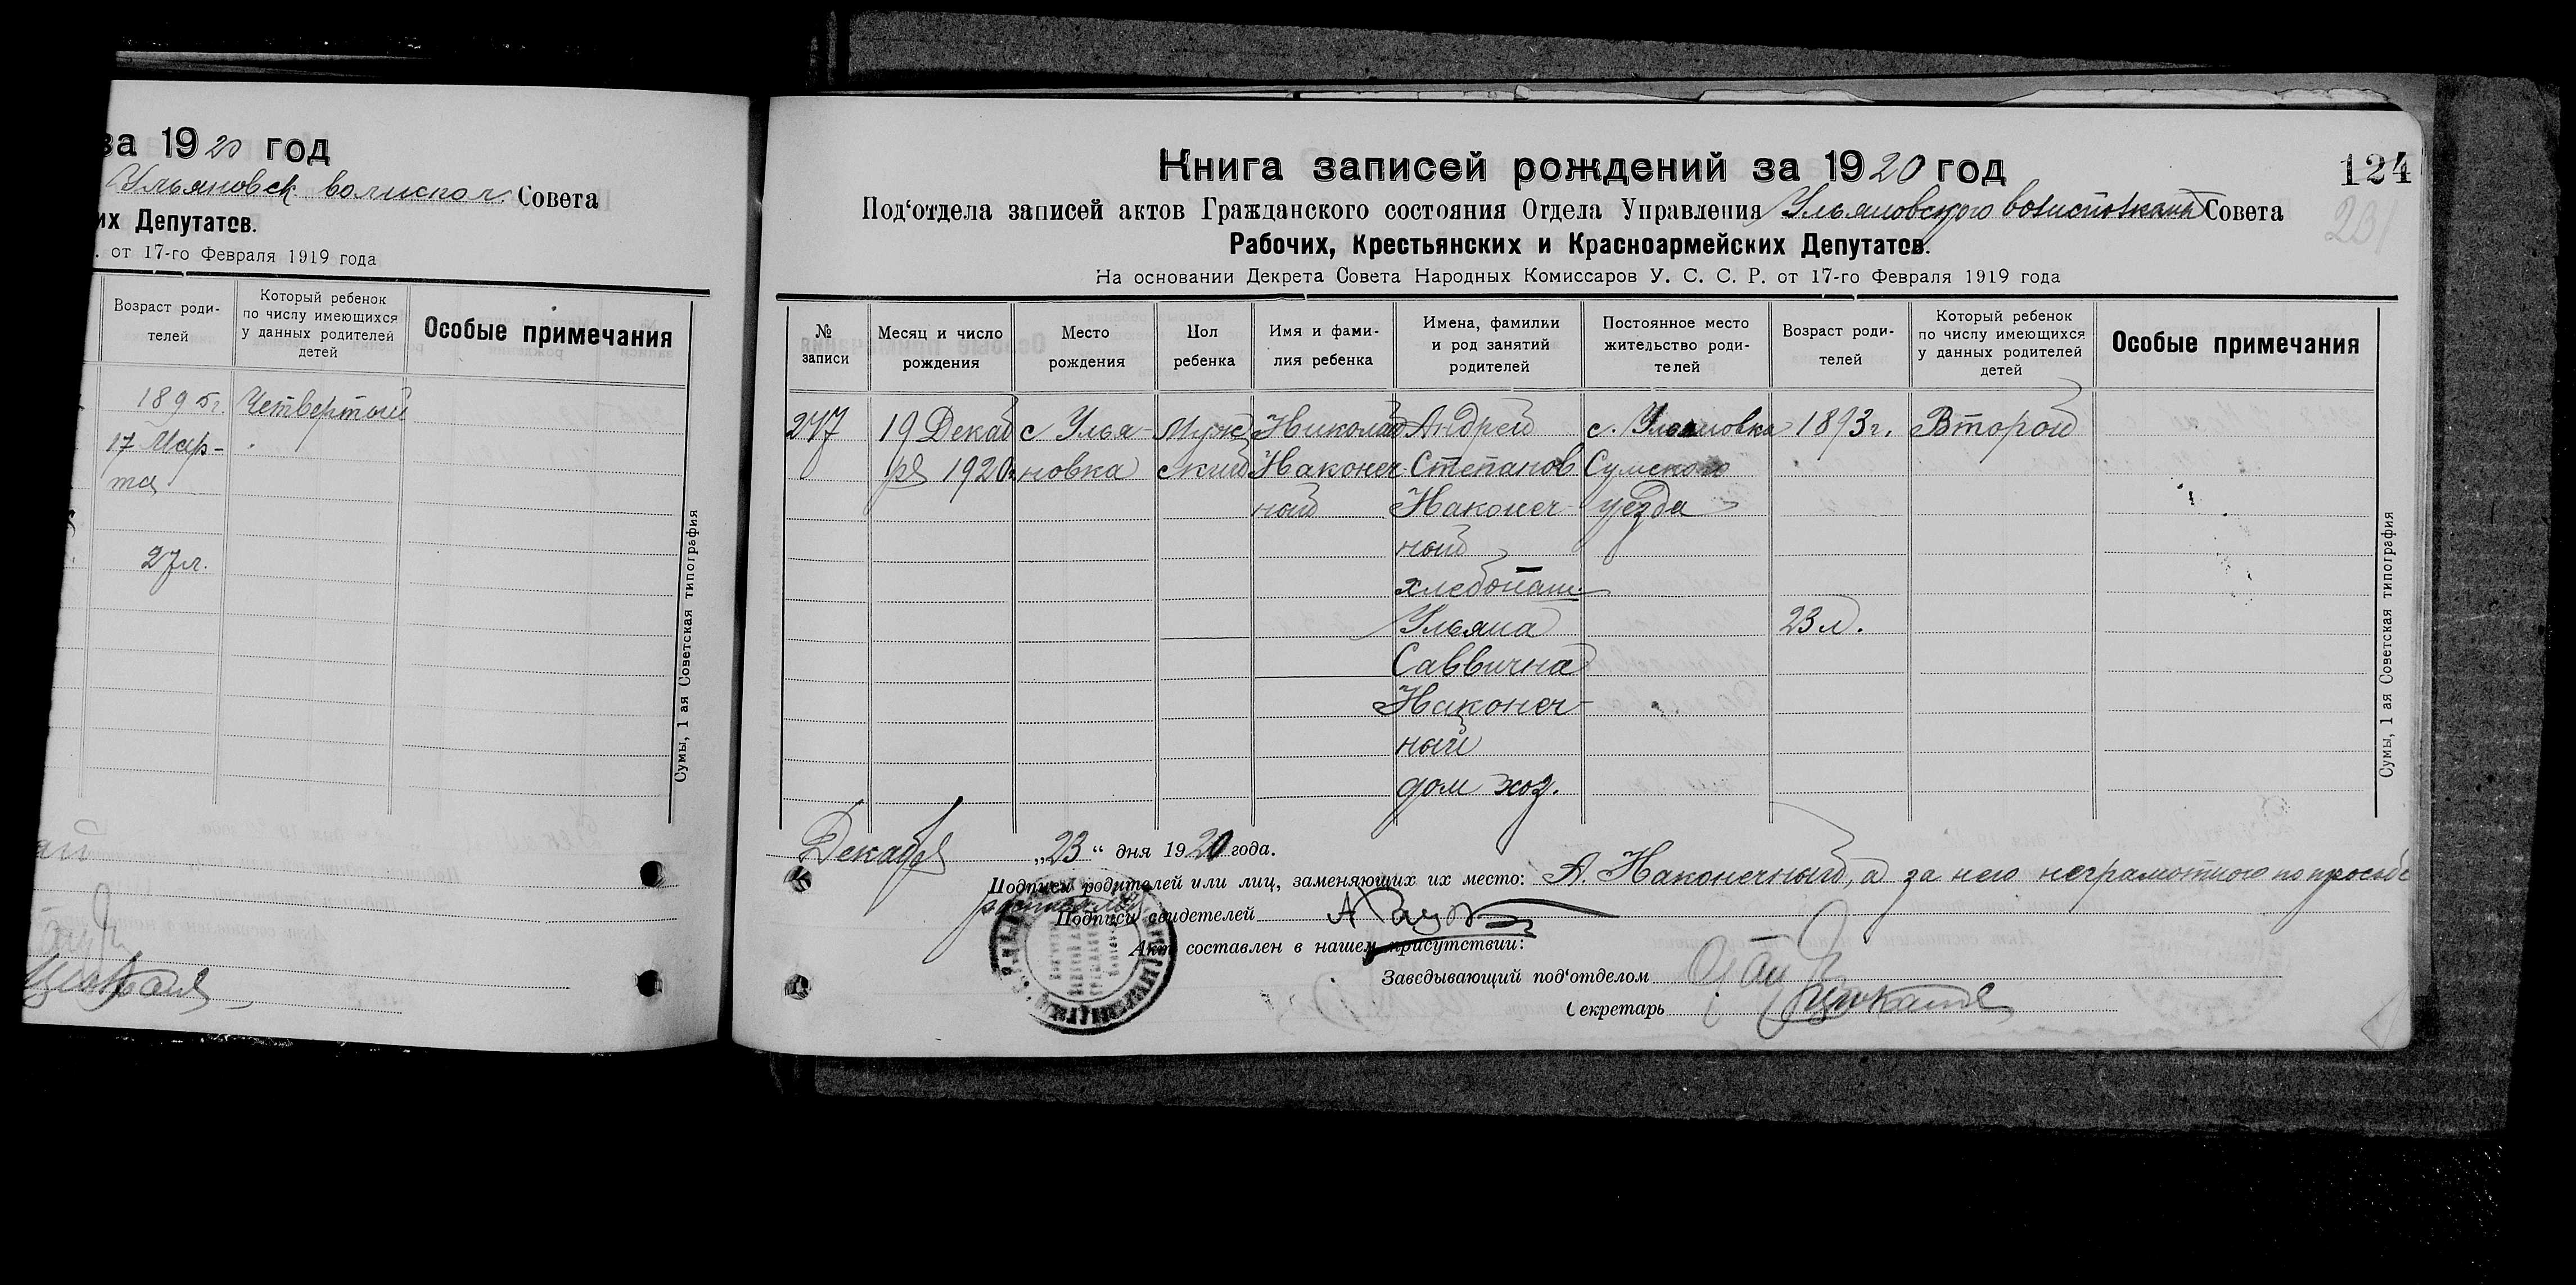 за 1920 год
Ульяновск. волиспол. Совета
их Депутатов.
. от 17-го Февраля 1919 года
Возраст роди-
телей
Который ребенок
по числу имеющихся
у данных родителей
детей
Особые примечания
1895г. Четвертый
17 Мар-
та
27 л.
Сумы, 1 ая Советская типография
Книга записей рождений за 1920 год
124
Под‘отдела записей актов Гражданского состояния Отдела Управления Ульяновского Совета
Рабочих, Крестьянских и Красноармейских Депутатов.
На основании Декрета Совета Народных Комиссаров У. С. С. Р. от 17-го Февраля 1919 года
№
записи
Месяц и число
рождения
Место
рождения
Пол
ребенка
Имя и фами-
лия ребенка
Имена, фамилии
и род занятий
родителей
Постоянное место
жительство роди-
телей
Возраст роди-
телей
Который ребенок
по числу имеющихся
у данных родителей
детей
Особые примечания
247 19 Декаб с Улья- Муж Николай Андрей с. Ульяновка 1893г. Второй
ря 1920г новка ский Наконеч Степанов Сумского
ный Наконеч- уезда
ный
хлебопаш.
Ульяна 23 л.
Саввична
Наконеч-
ный
дом хоз.
Сумы, 1 ая Советская типография
Декабря „23“ дня 1920 года.
Подписи родителей или лиц, заменяющих их место: А. Наконечный, а за него неграмотного по просьбе
расписался
Подписи свидетелей
Акт составлен в нашем присутствии:
Заведывающий под‘отделом
Секретарь